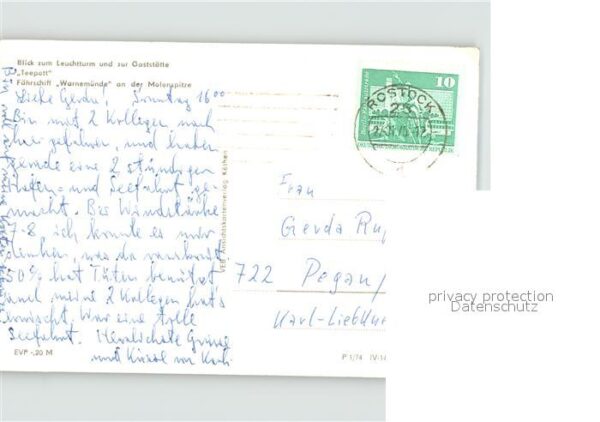 Blick zum Leuchtturm und zur Gaststätte
„Teepott“
Fährschiff „Warnemünde“ an der Molenspitze
Liebe Gerda! Sonntag 16 00
Bin mit 2 Kollegen nach
hier gefahren, und haben
gerade eine 2 stündige
Hafen- und Seefahrt ge-
macht. Bis Windstärke
7-8, ich konnte es nur
50% hat Tüten benützt
und meine 2 Kollegen hat's
erwischt. War eine tolle
Seefahrt. Herzlichste Grüsse
und Küsse von
EVP -,20 M
VEB Ansichtskartenverlag Köthen
10
ROSTOCK
Frau
Gerda
722 Pegau/
Karl-Liebkn
P 1/74 IV-14
privacy protection
Datenschutz